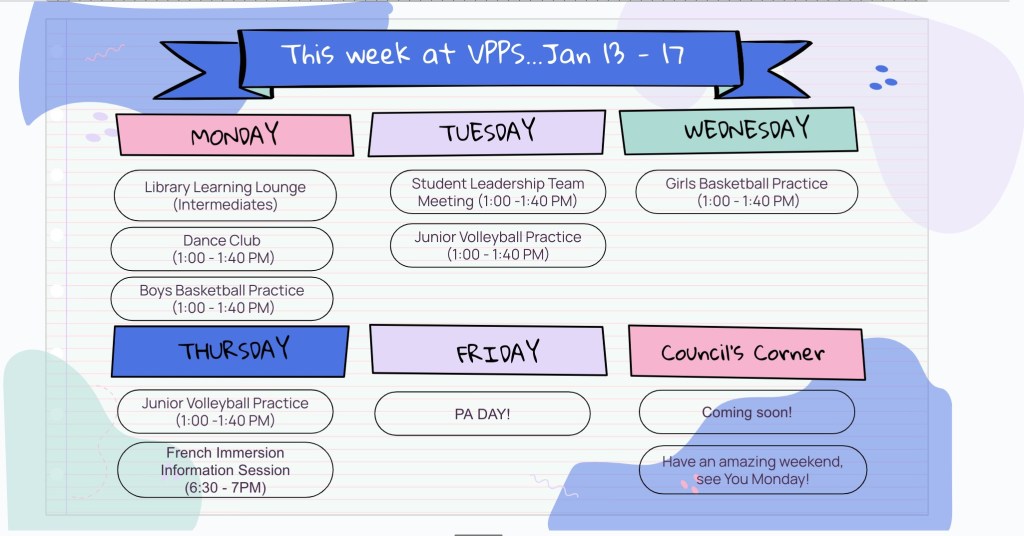 This week at VPPS...Jan 13 - 17
MONDAY
Library Learning Lounge
(Intermediates)
Dance Club
(1:00 - 1:40 PM)
Boys Basketball Practice
(1:00 - 1:40 PM)
TUESDAY
Student Leadership Team
Meeting (1:00 -1:40 PM)
Junior Volleyball Practice
(1:00 - 1:40 PM)
WEDNESDAY
Girls Basketball Practice
(1:00 - 1:40 PM)
THURSDAY
Junior Volleyball Practice
(1:00 -1:40 PM)
French Immersion
Information Session
(6:30 - 7PM)
FRIDAY
PA DAY!
Council's Corner
Coming soon!
Have an amazing weekend,
see You Monday!